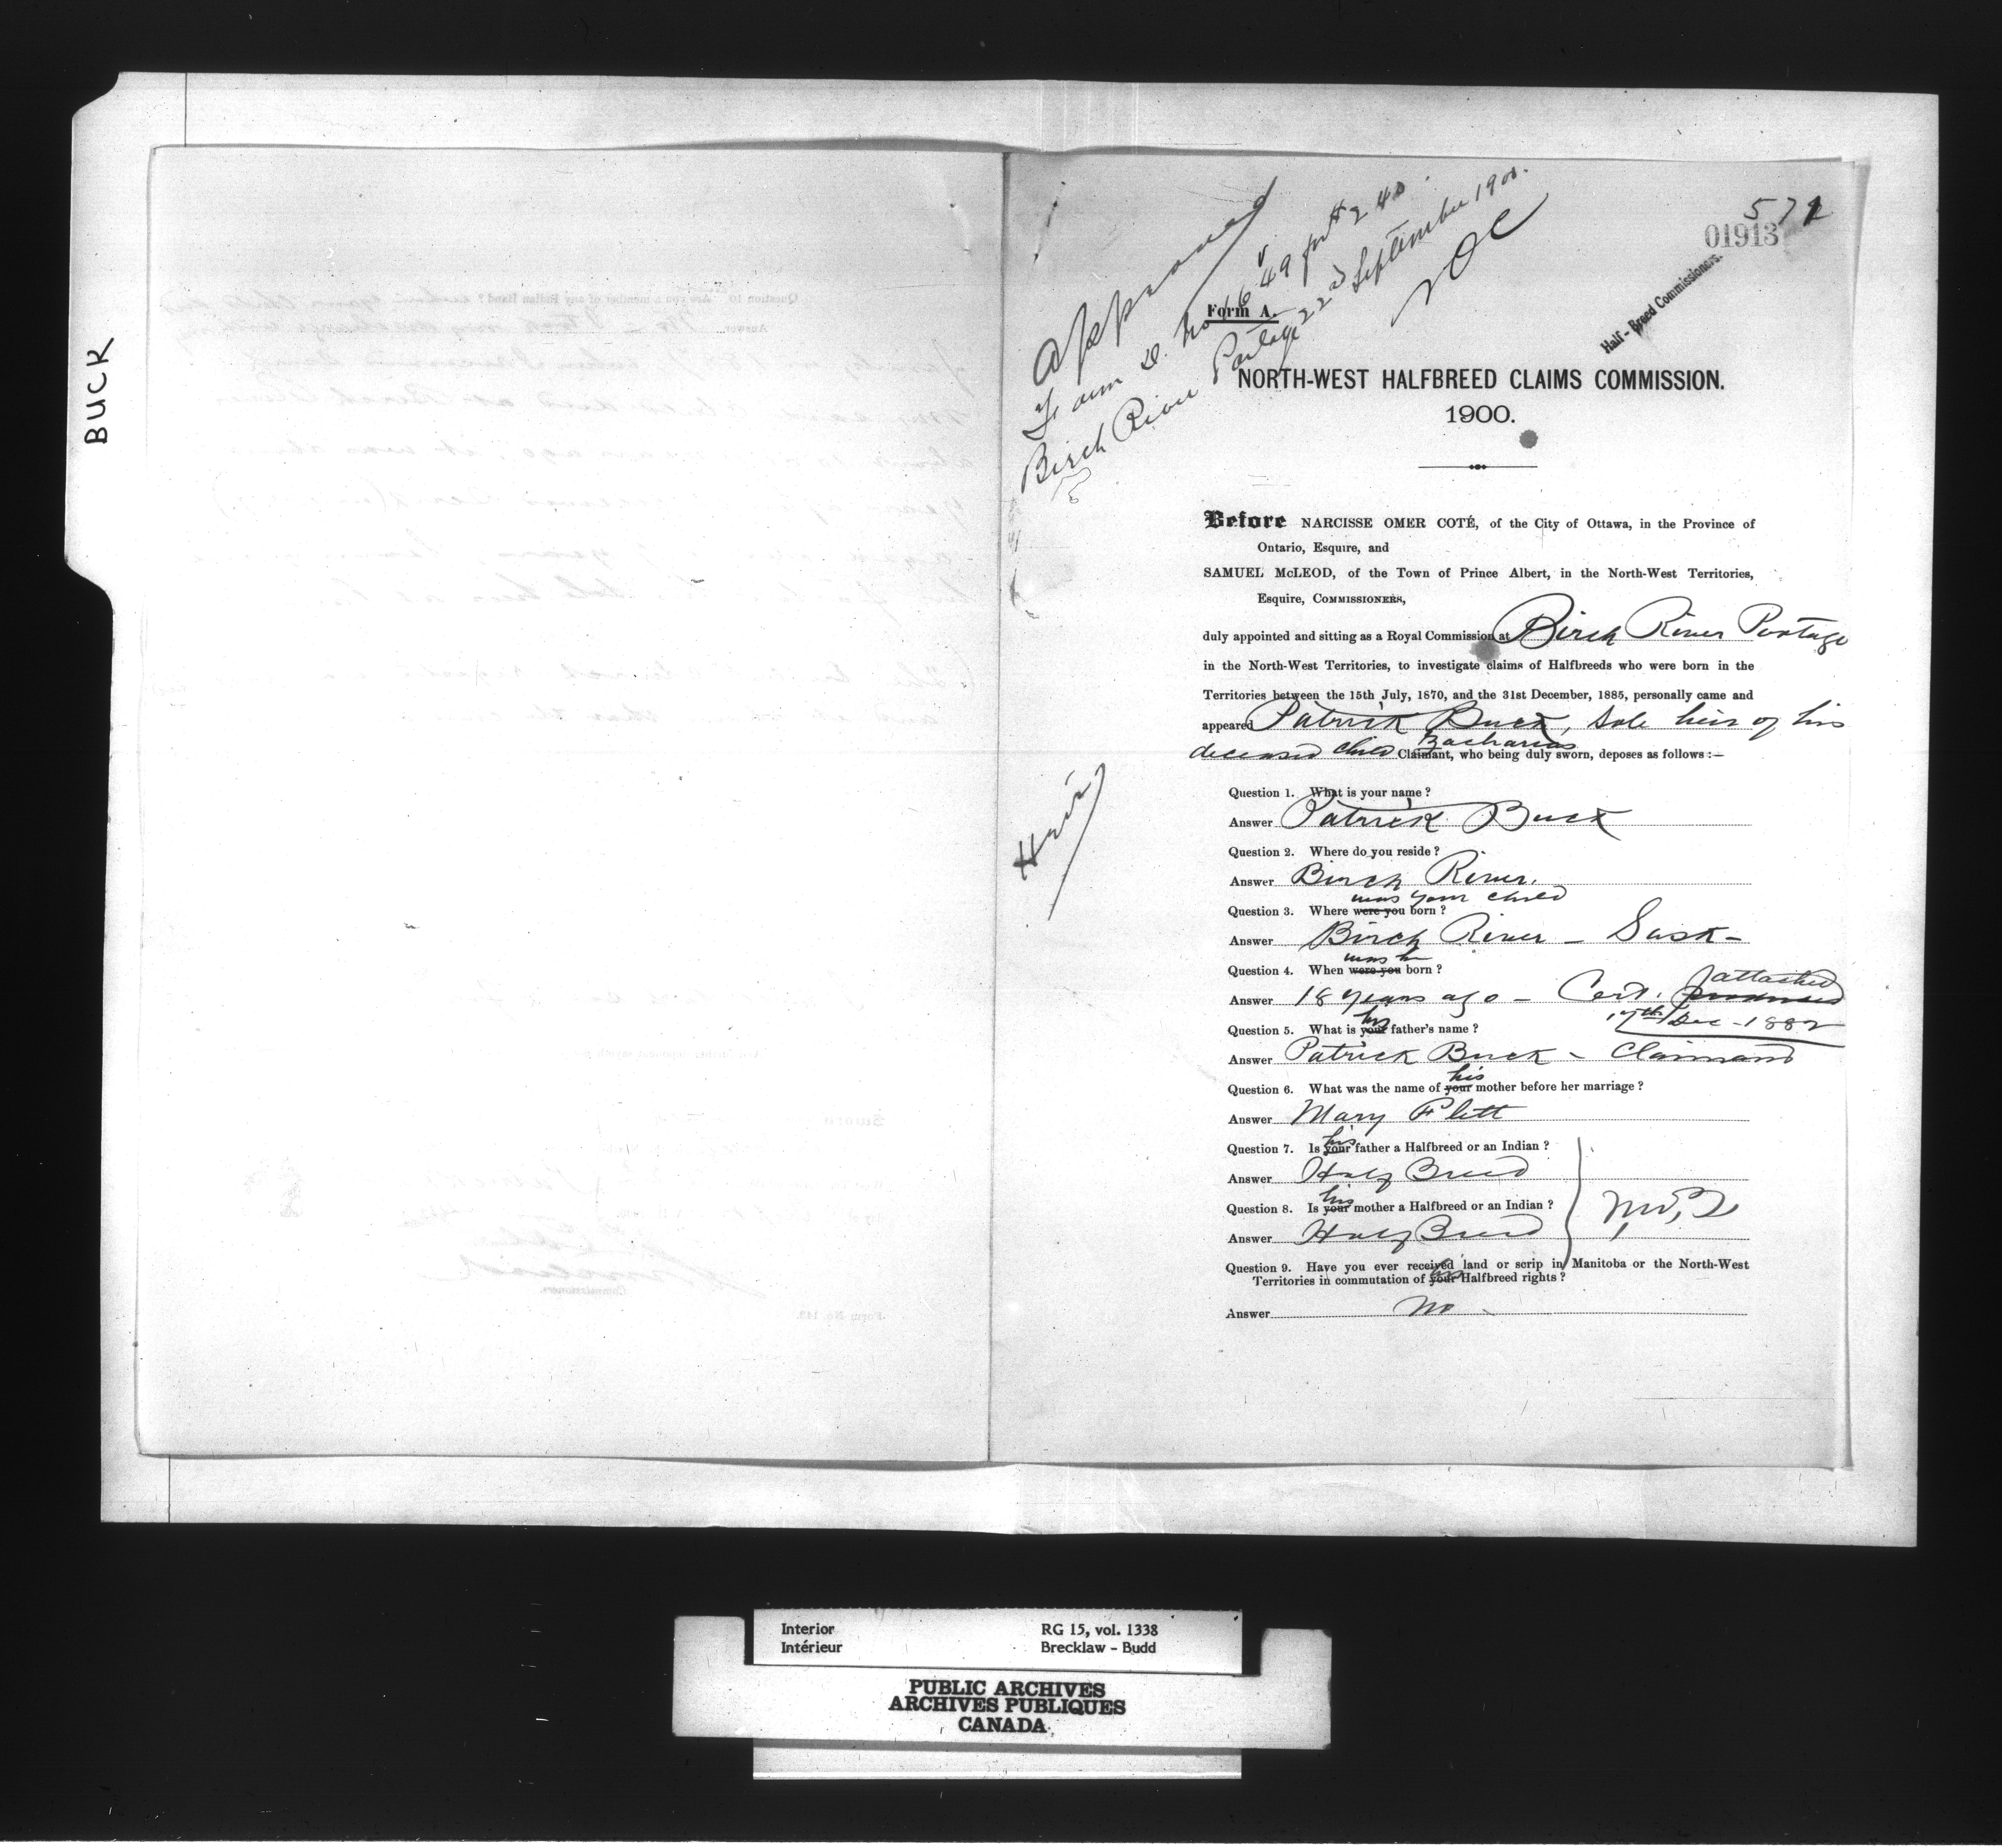 BUCK
Approved
Form D. No 1649 for $240.
Birch River Portage 22d September 1900.
NOC
572
01913
Half-Breed Commissioners.
Form A.
NORTH-WEST HALFBREED CLAIMS COMMISSION.
1900.
Before NARCISSE OMER COTÉ, of the City of Ottawa, in the Province of
Ontario, Esquire, and
SAMUEL McLEOD, of the Town of Prince Albert, in the North-West Territories,
Esquire, COMMISSIONERS,
duly appointed and sitting as a Royal Commission at Birch River Portage
in the North-West Territories, to investigate claims of Halfbreeds who were born in the
Territories between the 15th July, 1870, and the 31st December, 1885, personally came and
appeared Patrick Buck, Sole heir of his
deceased child Zacharias Claimant, who being duly sworn, deposes as follows :—
Heir
Question 1. What is your name ?
Answer Patrick Buck
Question 2. Where do you reside ?
Answer Birch River.
was your child
Question 3. Where were you born ?
Answer Birch River - Sask -
was he
Question 4. When were you born ?
attached
Answer 18 years ago - Cert. produced
17th Dec - 1882
his
Question 5. What is your father's name ?
Answer Patrick Buck - Claimant
his
Question 6. What was the name of your mother before her marriage ?
Answer Mary Flett
his
Question 7. Is your father a Halfbreed or an Indian ?
Answer Half Breed
his
Question 8. Is your mother a Halfbreed or an Indian ?
N.W.T
Answer Half Breed
Question 9. Have you ever received land or scrip in Manitoba or the North-West
Territories in commutation of your his Halfbreed rights ?
Answer No -
Interior RG 15, vol. 1338
Intérieur Brecklaw - Budd
PUBLIC ARCHIVES
ARCHIVES PUBLIQUES
CANADA